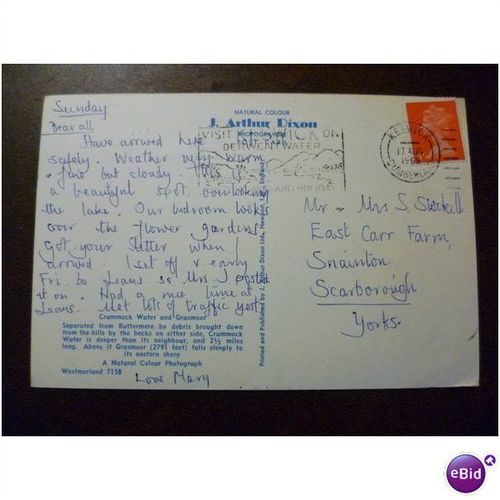 Sunday
Dear all
Have arrived here
safely. Weather very warm
+ fine but cloudy. This is
a beautiful spot overlooking
the lake. Our bedroom looks
over the flower gardens
Got your letter when I
arrived I set off v. early
Fri. to so Mrs J posted
it on. Had a nice time at
Met lots of traffic yest.
Love Mary
NATURAL COLOUR
J. Arthur Dixon
PHOTOGRAPH
VISIT KESWICK ON
DERWENTWATER
AND HOLIDAY
KESWICK
17 AUG
1969
CUMBERLAND
Mr + Mrs S.
East Carr Farm,
Snainton,
Scarborough
Yorks.
Crummock Water and Grasmoor
Separated from Buttermere by debris brought down
from the hills by the becks on either side, Crummock
Water is deeper than its neighbour, and 2½ miles
long. Above it Grasmoor (2791 feet) falls steeply to
its eastern shore
A Natural Colour Photograph
Westmorland 7158
Printed and Published by J. Arthur Dixon Ltd., Newport, I.W., England
eBid